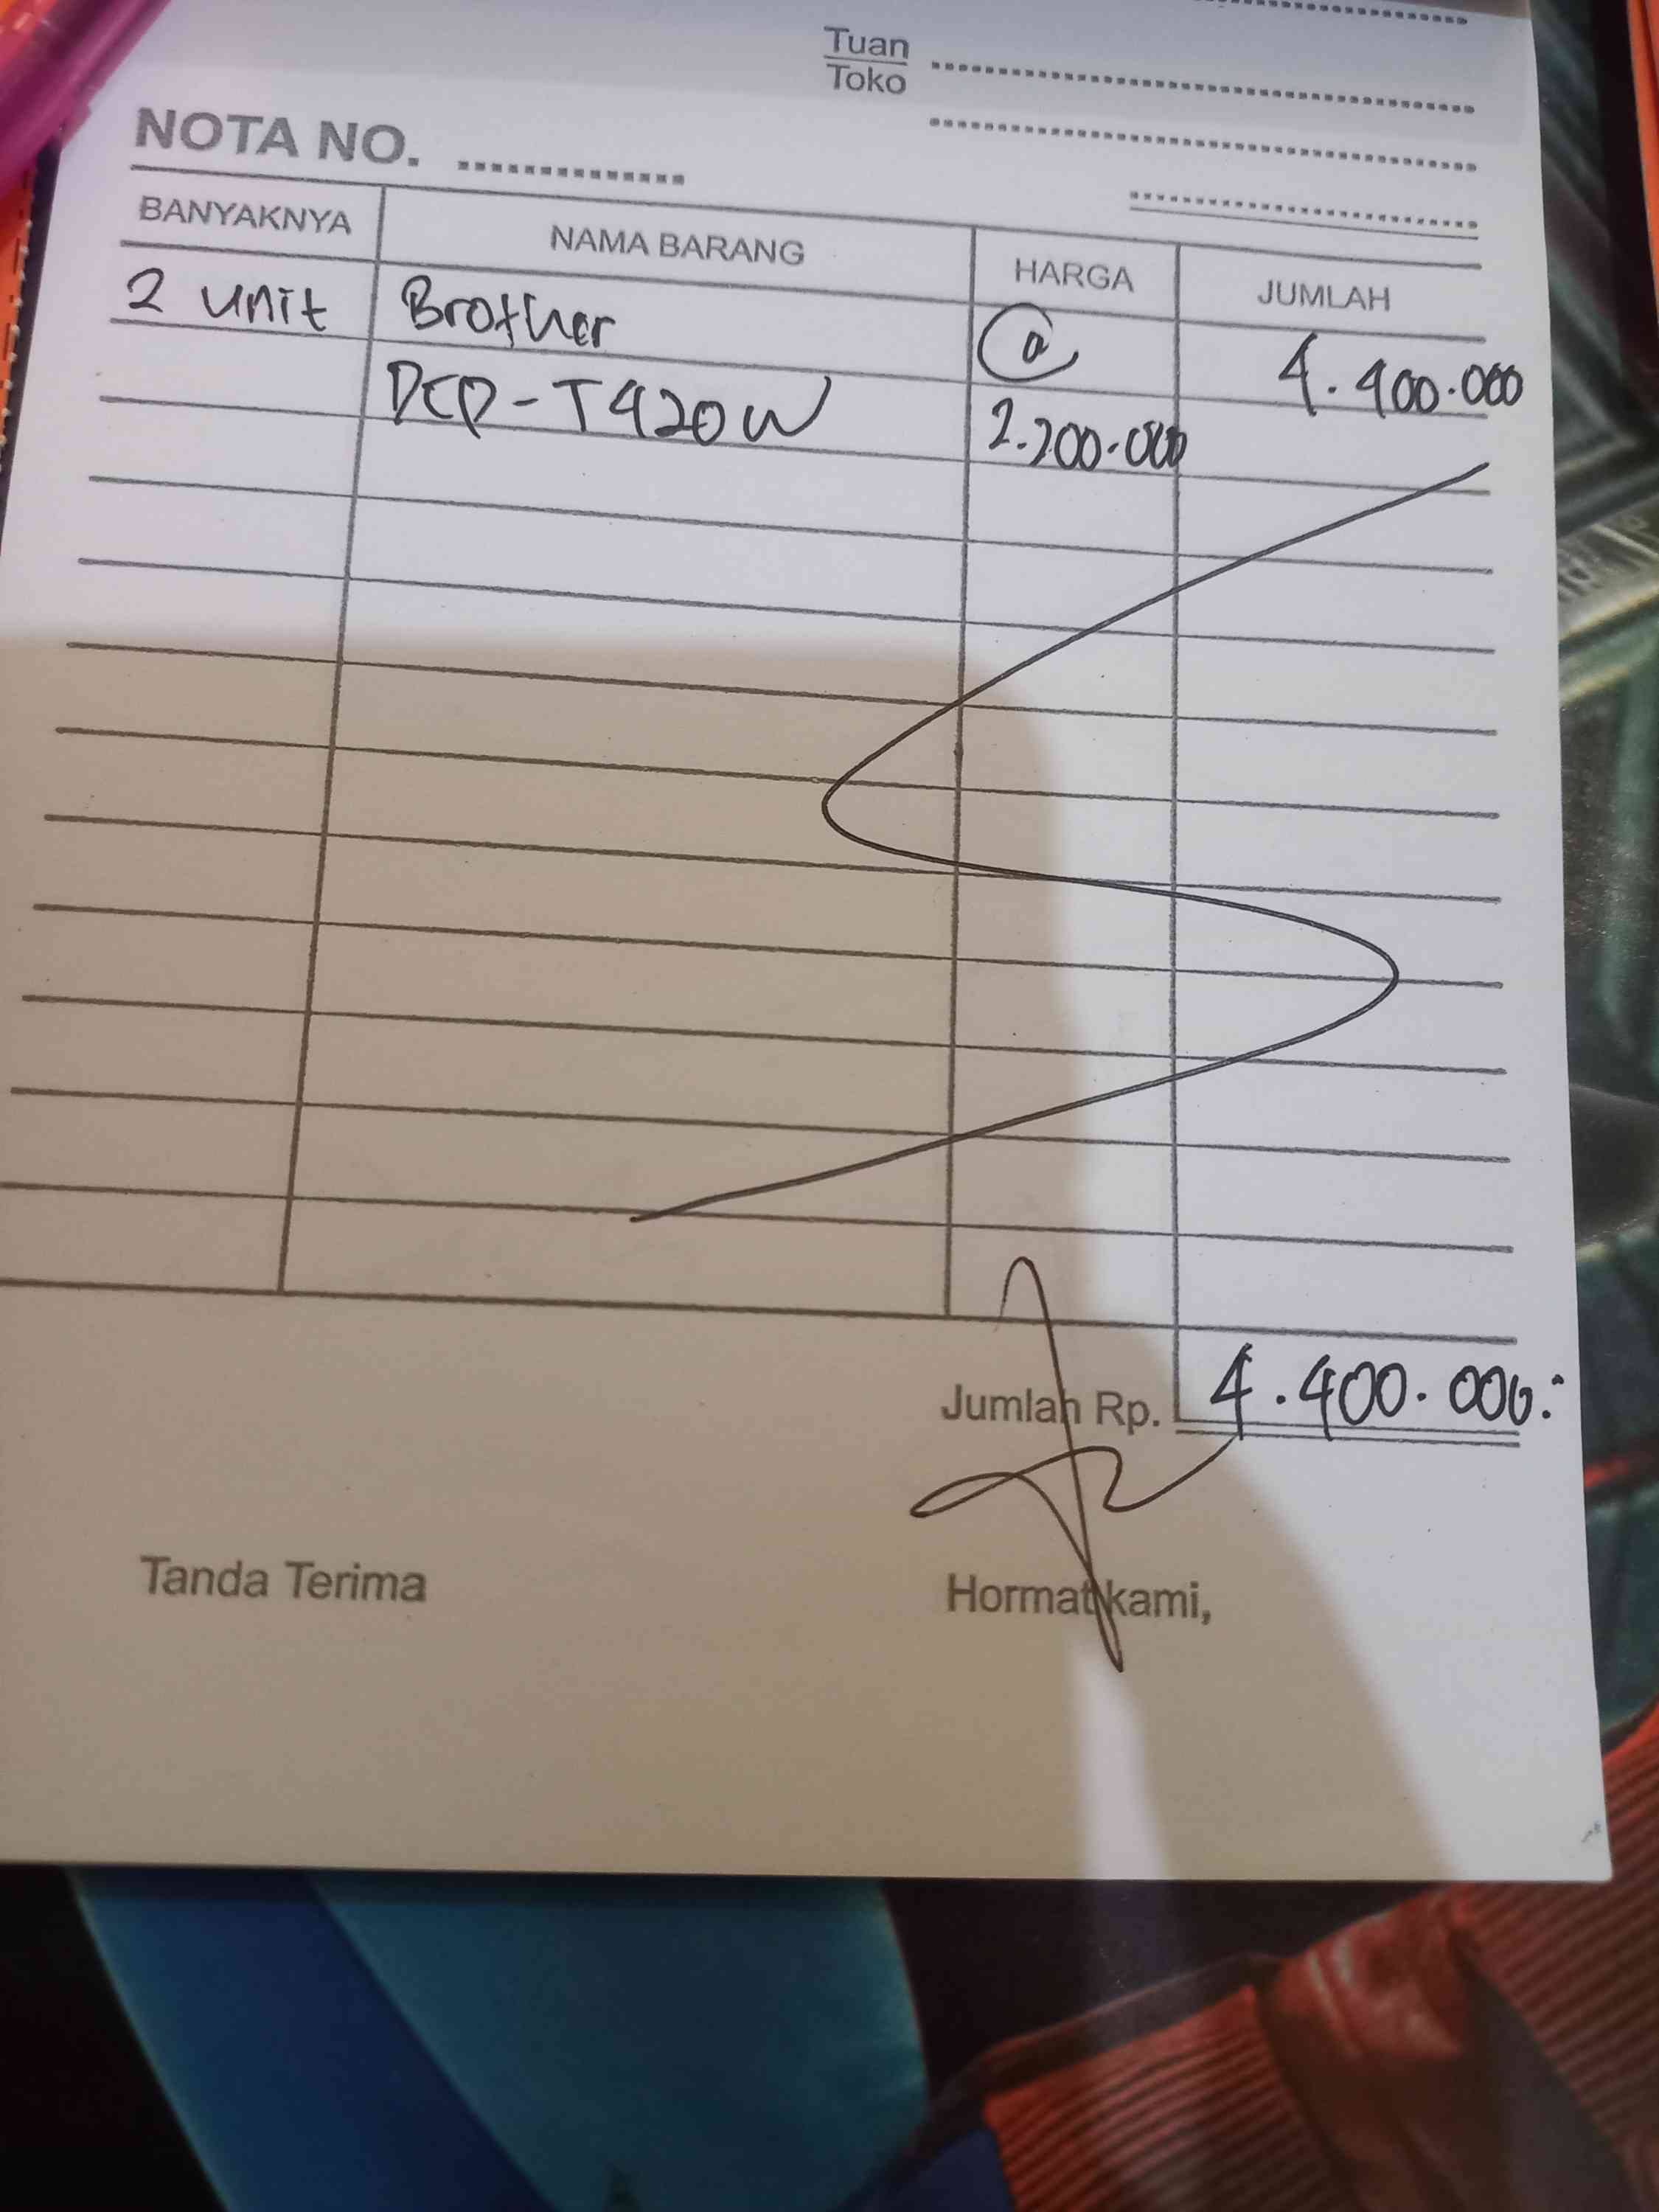 Tuan
Toko
NOTA NO.
BANYAKNYA NAMA BARANG HARGA JUMLAH
2 unit Brother @ 4.400.000
DCP-T420W 2.200.000
Jumlah Rp. 4.400.000:
Tanda Terima Hormat kami,